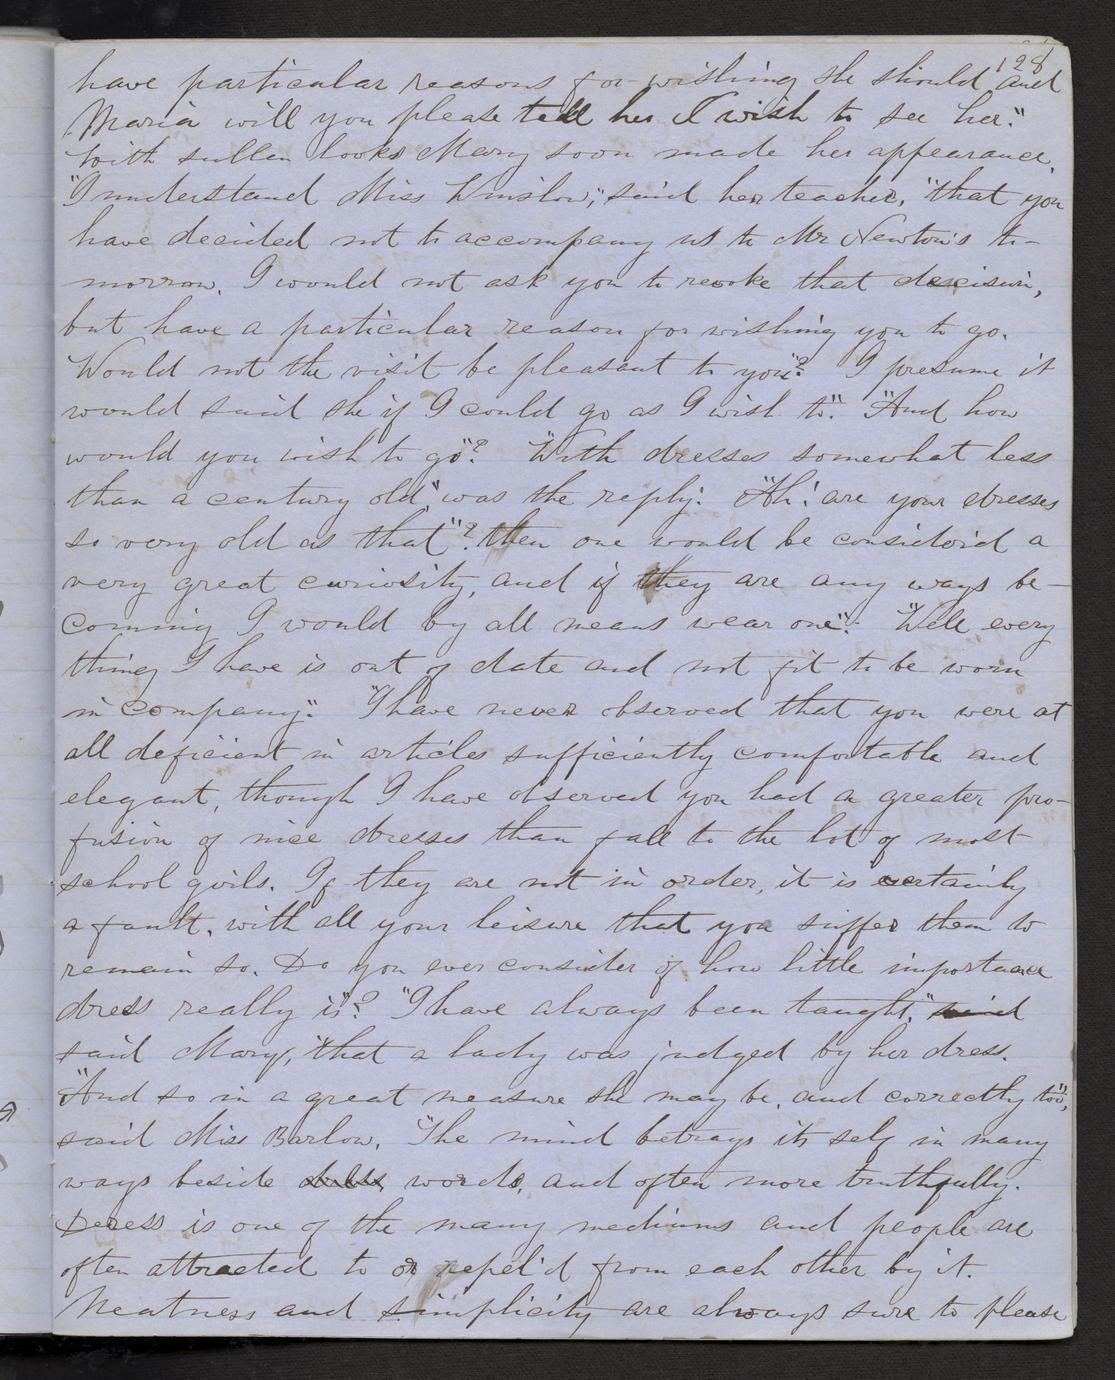 128
have particular reasons for wishing she should and
Maria will you please tell her I wish to see her."
With sullen looks Mary soon made her appearance.
"I understand Miss Winslow," said her teacher, "that you
have decided not to accompany us to Mr Newton's to-
morrow. I would not ask you to revoke that descision,
but have a particular reason for wishing you to go.
Would not the visit be pleasant to you"? I presume it
would said she if I could go as I wish to". "And how
would you wish to go"? "With dresses somewhat less
than a century old" was the reply. "Ah! are your dresses
so very old as that"? then one would be considerd a
very great curiosity, and if they are any ways be-
coming I would by all means wear one". "Well every
thing I have is out of date and not fit to be worn
in company". "I have never observed that you were at
all deficient in articles sufficiently comfortable and
elegant, though I have observed you had a greater pro-
fusion of nice dresses than fall to the lot of most
school girls. If they are not in order, it is certainly
a fault, with all your leisure that you suffer them to
remain so. Do you ever consider of how little importance
dress really is"? "I have always been taught," said
said Mary, "that a lady was judged by her dress.
"And so in a great measure she may be, and correctly too",
said Miss Barlow. "The mind betrays its self in many
ways beside words, and often more truthfully.
Deress is one of the many mediums and people are
often attracted to or repel'd from each other by it.
Neatness and simplicity are always sure to please